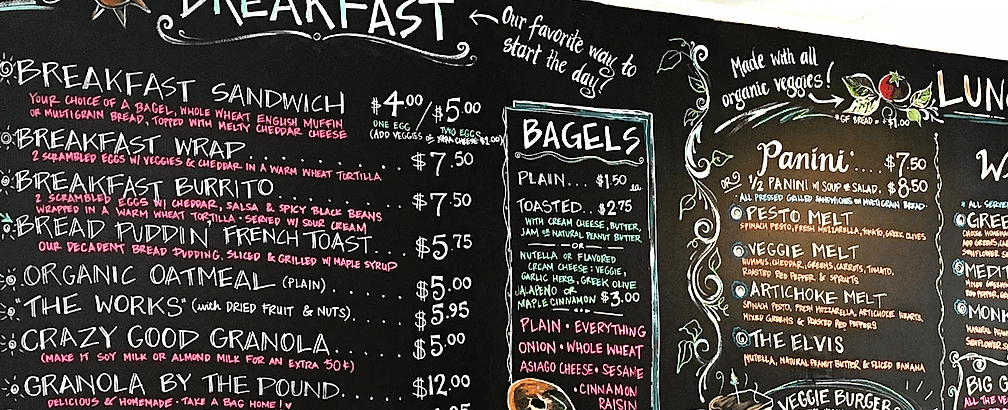 BREAKFAST
Our favorite way to
start the day!
BREAKFAST SANDWICH $4.00/$5.00
YOUR CHOICE OF A BAGEL, WHOLE WHEAT ENGLISH MUFFIN
OR MULTIGRAIN BREAD, TOPPED WITH MELTY CHEDDAR CHEESE
ONE EGG TWO EGGS
(ADD VEGGIES OR CHEESE $1.00)
BREAKFAST WRAP $7.50
2 SCRAMBLED EGGS W/ VEGGIES & CHEDDAR IN A WARM WHEAT TORTILLA
BREAKFAST BURRITO $7.50
2 SCRAMBLED EGGS W/ CHEDDAR, SALSA & SPICY BLACK BEANS
WRAPPED IN A WARM WHEAT TORTILLA · SERVED W/ SOUR CREAM
BREAD PUDDIN' FRENCH TOAST $5.75
OUR DECADENT BREAD PUDDING, SLICED & GRILLED W/ MAPLE SYRUP
ORGANIC OATMEAL (PLAIN) $5.00
"THE WORKS" (with DRIED FRUIT & NUTS) $5.95
CRAZY GOOD GRANOLA $5.00
(MAKE IT SOY MILK OR ALMOND MILK FOR AN EXTRA 50¢)
GRANOLA BY THE POUND $12.00
DELICIOUS & HOMEMADE · TAKE A BAG HOME!
BAGELS
PLAIN... $1.50 ea.
TOASTED... $2.75
WITH CREAM CHEESE, BUTTER,
JAM OR NATURAL PEANUT BUTTER
OR
NUTELLA OR FLAVORED
CREAM CHEESE: VEGGIE,
GARLIC HERB, GREEK OLIVE
JALAPEÑO OR
MAPLE CINNAMON $3.00
PLAIN • EVERYTHING
ONION • WHOLE WHEAT
ASIAGO CHEESE • SESAME
• CINNAMON
RAISIN
Made with all
organic veggies!
*GF BREAD = +$1.00
Panini $7.50
OR 1/2 PANINI W/ SOUP & SALAD. $8.50
ALL PRESSED GRILLED SANDWICHES ON MULTIGRAIN BREAD
PESTO MELT
SPINACH PESTO, FRESH MOZZARELLA, TOMATO, GREEK OLIVES
VEGGIE MELT
HUMMUS, CHEDDAR, GREENS, CARROTS, TOMATO,
ROASTED RED PEPPER & SPROUTS
ARTICHOKE MELT
SPINACH PESTO, FRESH MOZZARELLA, ARTICHOKE HEARTS,
MIXED GREENS & ROASTED RED PEPPERS
THE ELVIS
NUTELLA, NATURAL PEANUT BUTTER & SLICED BANANA
VEGGIE BURGER
LUN
W
ALL SERVE
GREE
MEDI
MONK
BIG G
ALL THE VE